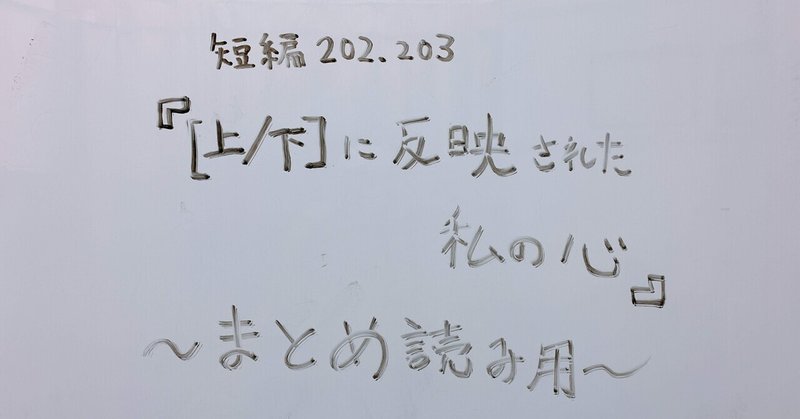 短編202.203
『[上/下]に反映された
私の心』
～まとめ読み用～